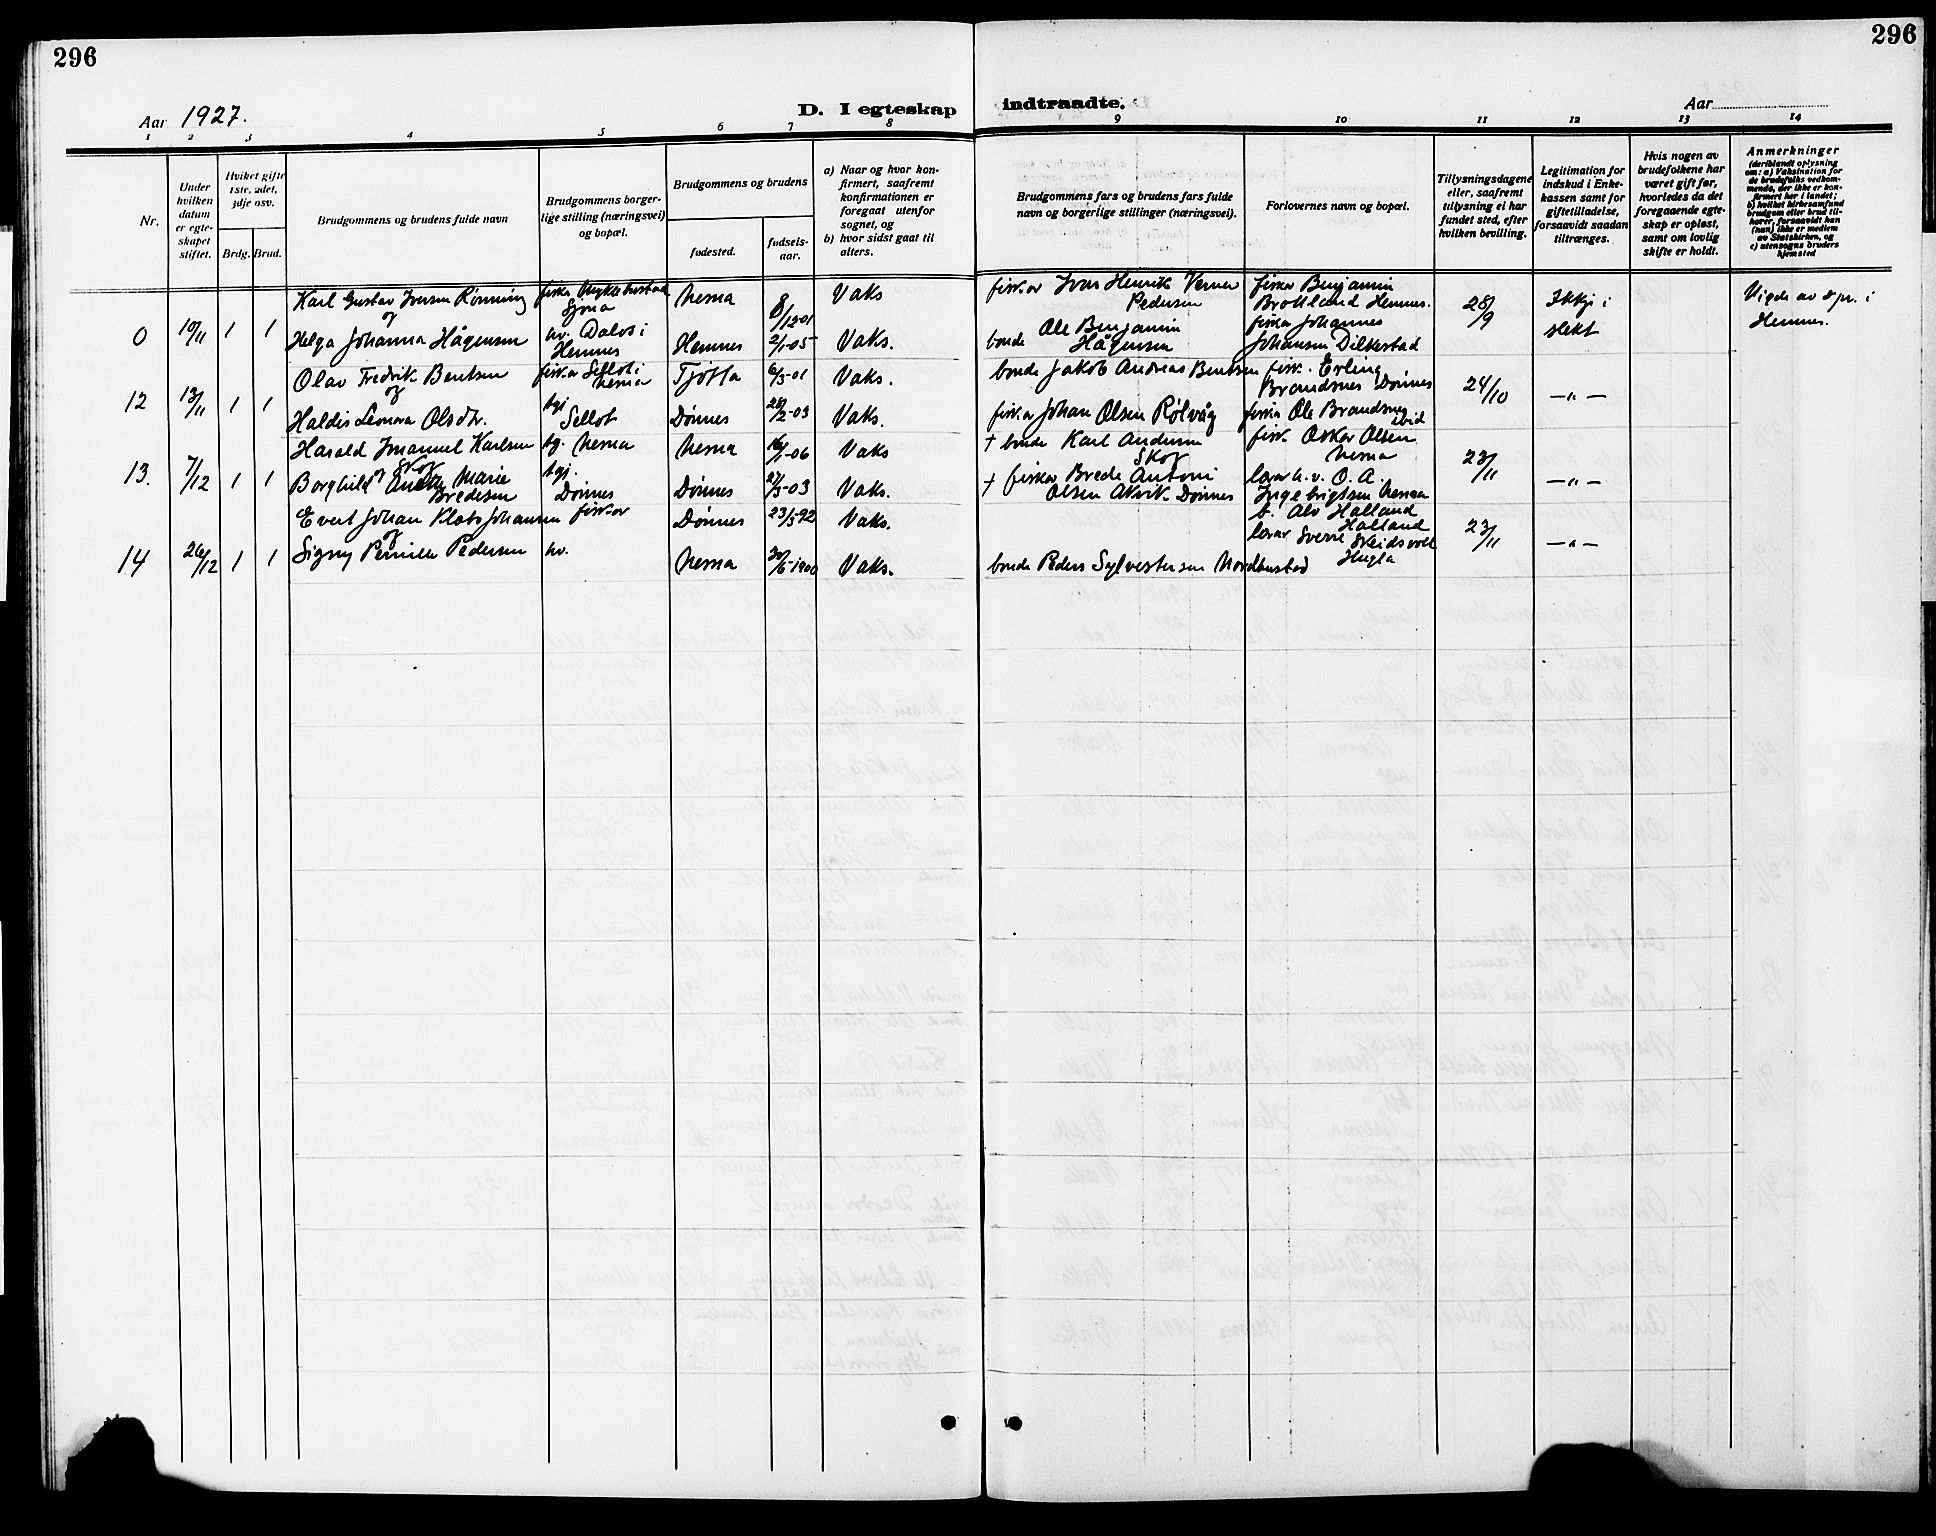 296
296
Aar 1927.
D. I egteskap
indtraadte.
Aar
1 2 3 4 5 6 7 8
9 10 11 12 13 14
Nr.
Under hvilken datum er egteskapet stiftet.
Hviket gifte 1ste, 2det, 3dje osv.
Brdg. Brud.
Brudgommens og brudens fulde navn
Brudgommens borgerlige stilling (næringsvei) og bopæl.
Brudgommens og brudens
fødested.
fødselsaar.
a) Naar og hvor konfirmert, saafremt konfirmationen er foregaat utenfor sognet, og
b) hvor sidst gaat til alters.
Brudgommens fars og brudens fars fulde navn og borgerlige stillinger (næringsvei).
Forlovernes navn og bopæl.
Tillysningsdagene eller, saafremt tillysning ei har fundet sted, efter hvilken bevilling.
Legitimation for indskud i Enkekassen samt for giftetilladelse, forsaavidt saadan tiltrænges.
Hvis nogen av brudefolkene har været gift før, hvorledes da det foregaaende egteskap er opløst, samt om lovlig skifte er holdt.
Anmerkninger
(deriblandt oplysning om: a) Vaksination for de brudefolks vedkommende, der ikke er konfirmert her i landet; b) hvilket kirkesamfund brudgom eller brud tilhører, forsaavidt han (hun) ikke er medlem av Statskirken, og c) utensogns bruders hjemsted
0 10/11 1 1
Karl Gustav Iversen Rønning
og
Helga Johanna Hågensen
fisker
Sjona
Dalos i
Hemnes
Nesna 8/12-01 Vaks
Hemnes 2/1-05 Vaks.
fisker Ivar Henrik Verner
Pedersen
bonde Ole Benjamin
Hågensen
fisker Benjamin
Brattland Hemnes.
fisker Johannes
Johansen Dilkestad
28/9
Ikkje i
slekt
Vigde av spr. i
Hemnes.
12 13/11 1 1
Olav Fredrik Bentsen
og
Haldis Leonora Olsdtr.
fisker Selløt i
Nesna
tgj.
Selløt
Tjøtta 6/3-01 Vaks.
Dønnes 28/2-03 Vaks.
bonde Jakob Andreas Bentsen
fisker Johan Olsen Rølvåg
fisk. Erling
Brandsnes Dønnes
fisker Ole Brandsnes
ibid
24/10
—"—
13. 7/12 1 1
Harald Imanuel Karlsen
Skog
og
Borghild Marie
Bredesen
tg. Nesna
tgj.
Dønnes
Nesna 16/1-06 Vaks
Dønnes 27/3-03 Vaks.
† bonde Karl Andersen
Skog
† fisker Brede Antoni
Olsen Åkvik Dønnes
fisk. Oskar Olsen
Nesna
lærar h.v. O. A.
Ingebrigtsen Nesna
23/11
—"—
14 26/12 1 1
Evert Johan Klæbo Johansen
og
Signy Pernille Pedersen
fisker
hv.
Dønnes 23/5-92 Vaks.
Nesna 30/6-1900 Vaks.
bonde Peder Sylvestersen Nordhustad
b. Alv Halland
Halland
lærar Sverre Skeidsvoll
Hugla
23/11
—"—